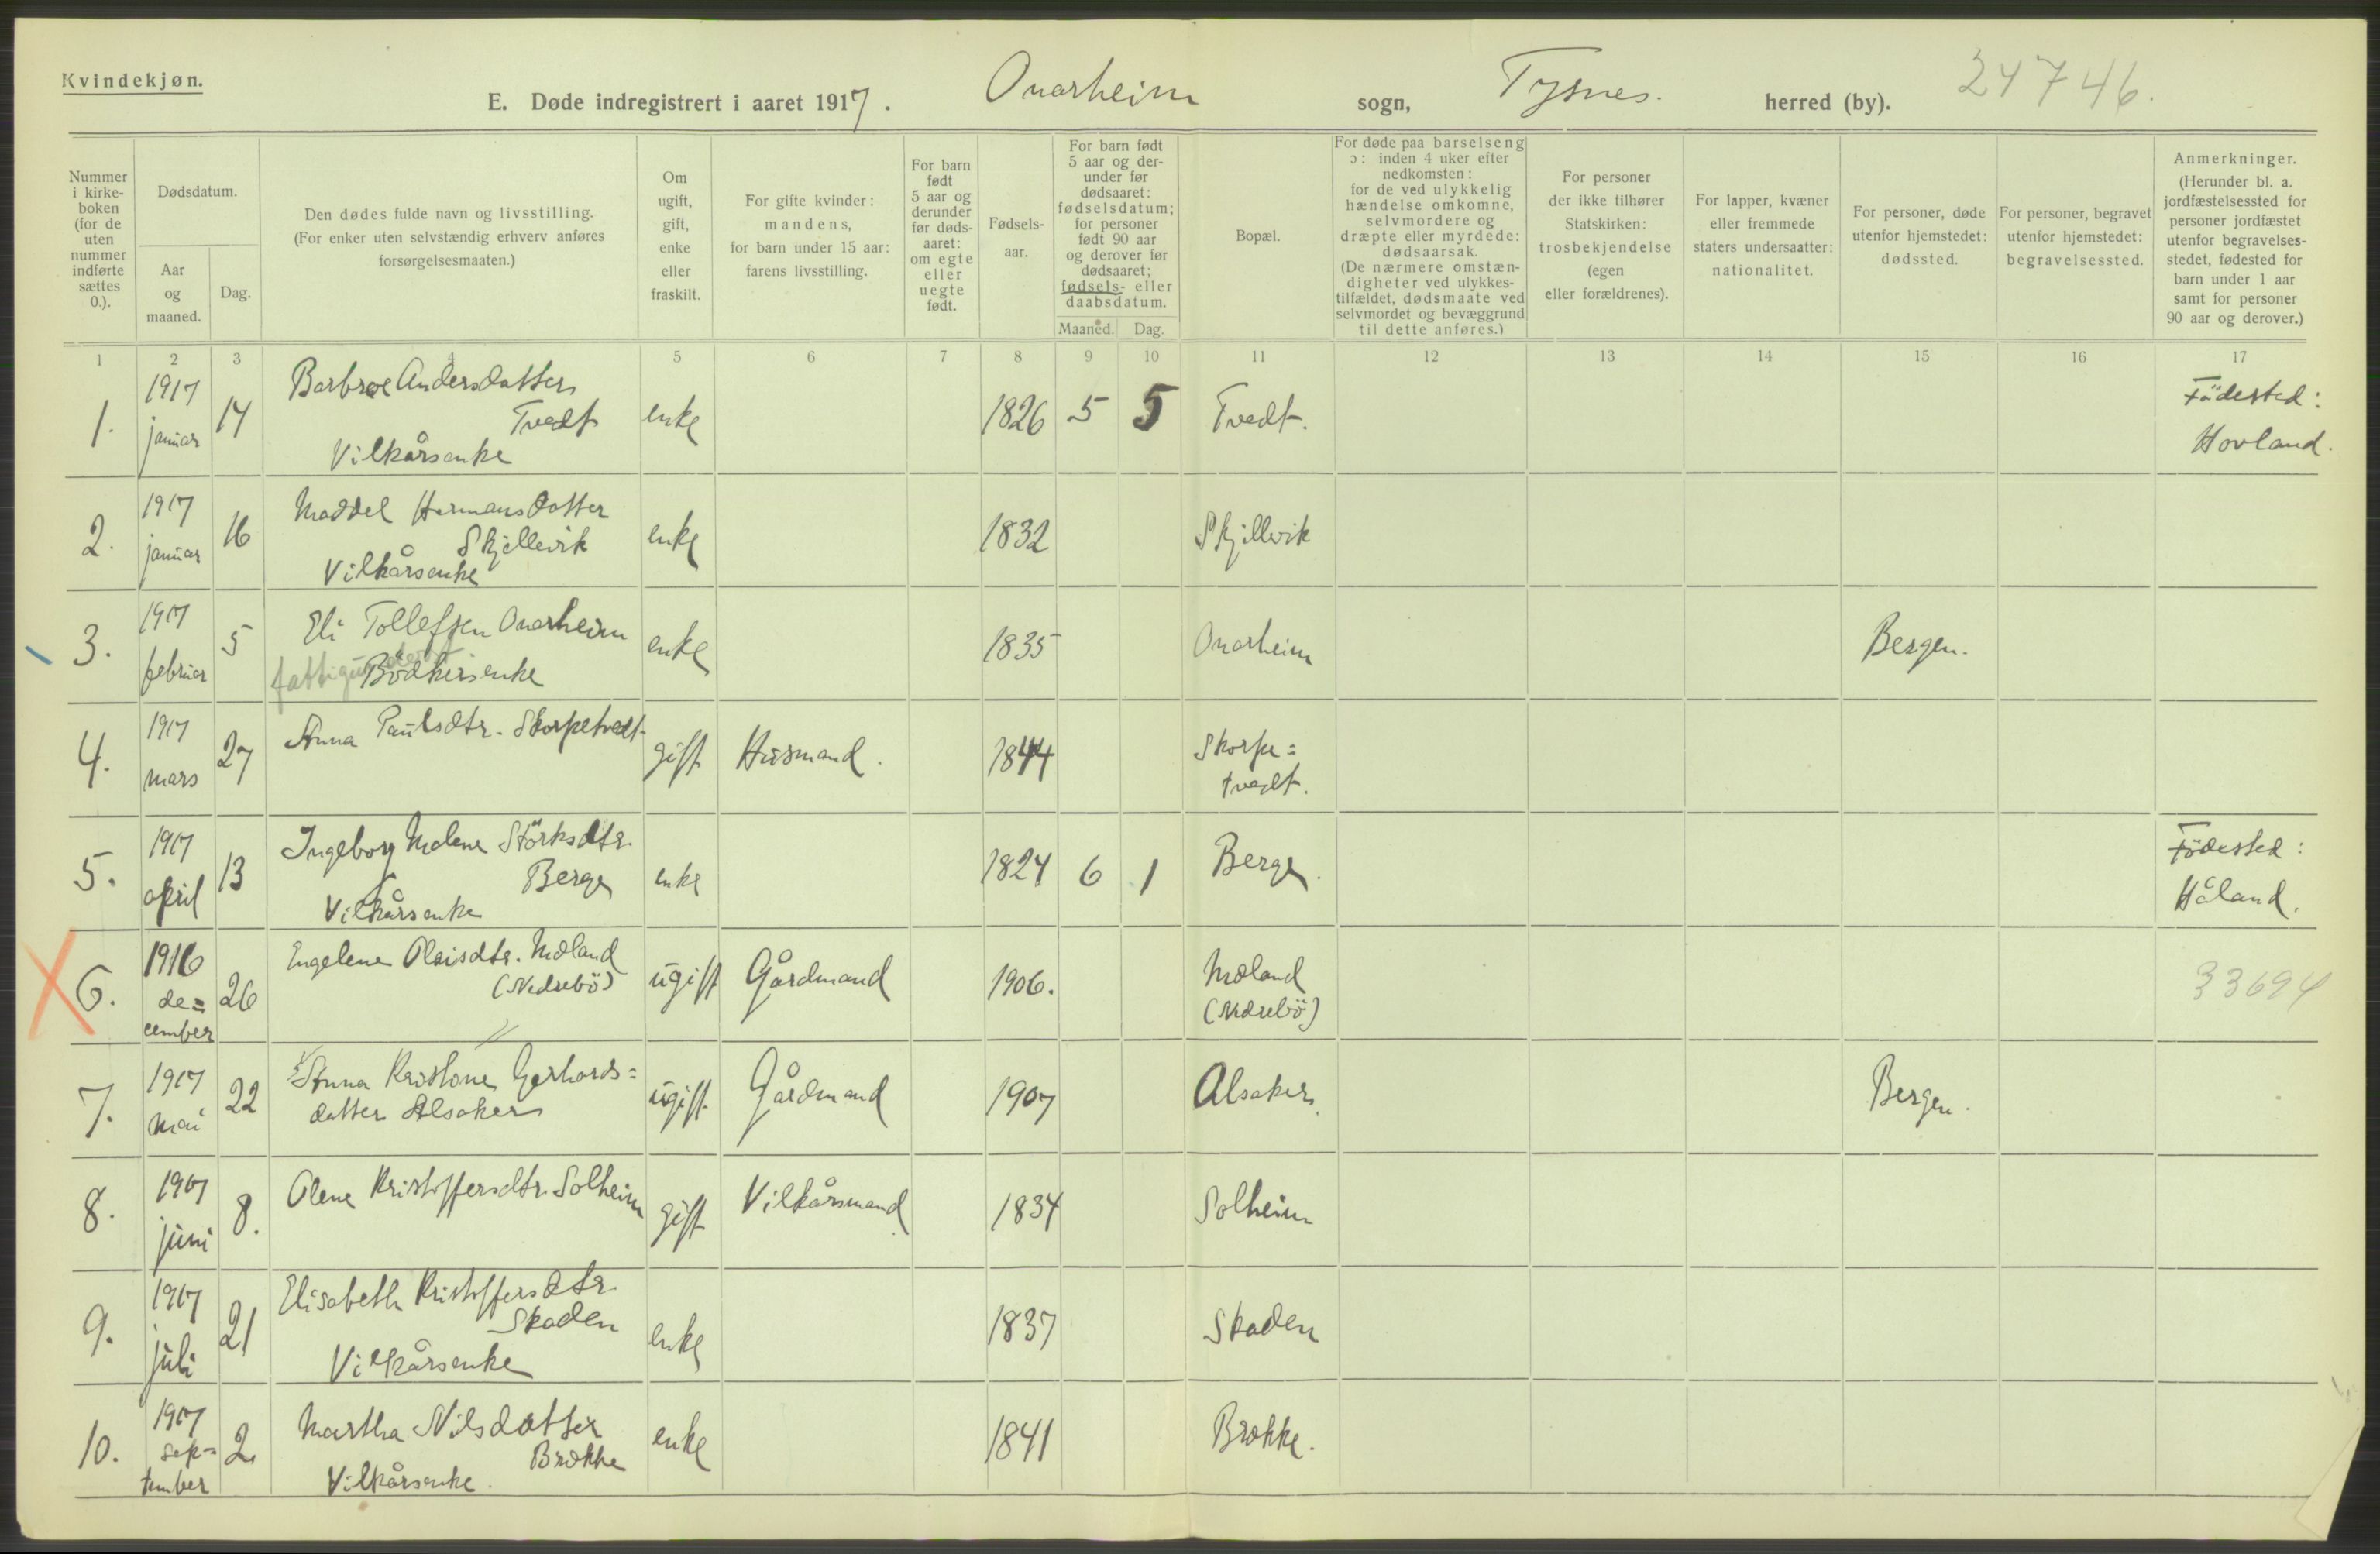 Kvindekjøn.
E. Døde indregistrert i aaret 1917. Onarheim sogn, Tysnes. herred (by). 24746.
Nummer i kirke-boken (for de uten nummer indførte sættes 0.).
Dødsdatum.
Aar og maaned.
Dag.
Den dødes fulde navn og livsstilling.
(For enker uten selvstændig erhverv anføres forsørgelsesmaaten.)
Om ugift, gift, enke eller fraskilt.
For gifte kvinder: mandens, for barn under 15 aar: farens livsstilling.
For barn født 5 aar og derunder før døds-aaret: om egte eller uegte født.
Fødsels-aar.
For barn født 5 aar og der-under før dødsaaret: fødselsdatum; for personer født 90 aar og derover før dødsaaret; fødsels- eller daabsdatum.
Maaned. Dag.
Bopæl.
For døde paa barselseng ɔ: inden 4 uker efter nedkomsten: for de ved ulykkelig hændelse omkomne, selvmordere og dræpte eller myrdede: dødsaarsak. (De nærmere omstæn-digheter ved ulykkes-tilfældet, dødsmaate ved selvmordet og bevæggrund til dette anføres.)
For personer der ikke tilhører Statskirken: trosbekjendelse (egen eller forældrenes).
For lapper, kvæner eller fremmede staters undersaatter: nationalitet.
For personer, døde utenfor hjemstedet: dødssted.
For personer, begravet utenfor hjemstedet: begravelsessted.
Anmerkninger. (Herunder bl. a. jordfæstelsessted for personer jordfæstet utenfor begravelses-stedet, fødested for barn under 1 aar samt for personer 90 aar og derover.)
1 2 3 4 5 6 7 8 9 10 11 12 13 14 15 16 17
1. 1917 januar 14 Barbroe Andersdatter Tvedt Vilkårsenke enke 1826 5 5 Tvedt. Födested: Hovland.
2. 1917 januar 16 Maddel Hermansdatter Skjellevik Vilkårsenke enke 1832 Skjillevik
3. 1917 februar 5 Eli Tollefsen Onarheim Bödkersenke enke 1835 Onarheim Bergen.
4. 1917 mars 27 Anna Paulsdtr. Skorpetvedt gift Husmand. 1844 Skorpe=tvedt.
5. 1917 april 13 Ingeborg Malene Störksdtr. Berge Vilkårsenke enke 1824 6 1 Berge. Födested: Håland.
6. 1916 de=cember 26 Engelene Olaisdtr. Mæland (Nedrebö) ugift Gårdmand 1906. Mæland (Nedrebö) 33694
7. 1917 mai 22 Anna Kristone Gerhards=datter Alsaker ugift Gårdmand 1907 Alsaker. Bergen.
8. 1917 juni 8. Olene Kristoffersdtr. Solheim gift Vilkårsmand 1834 Solheim
9. 1917 juli 21 Elisabeth Kristoffersdtr. Skaden Vilkårsenke enke 1837 Skaden
10. 1917 sep=tember 2. Martha Nilsdatter Brække Vilkårsenke. enke 1841 Brække.